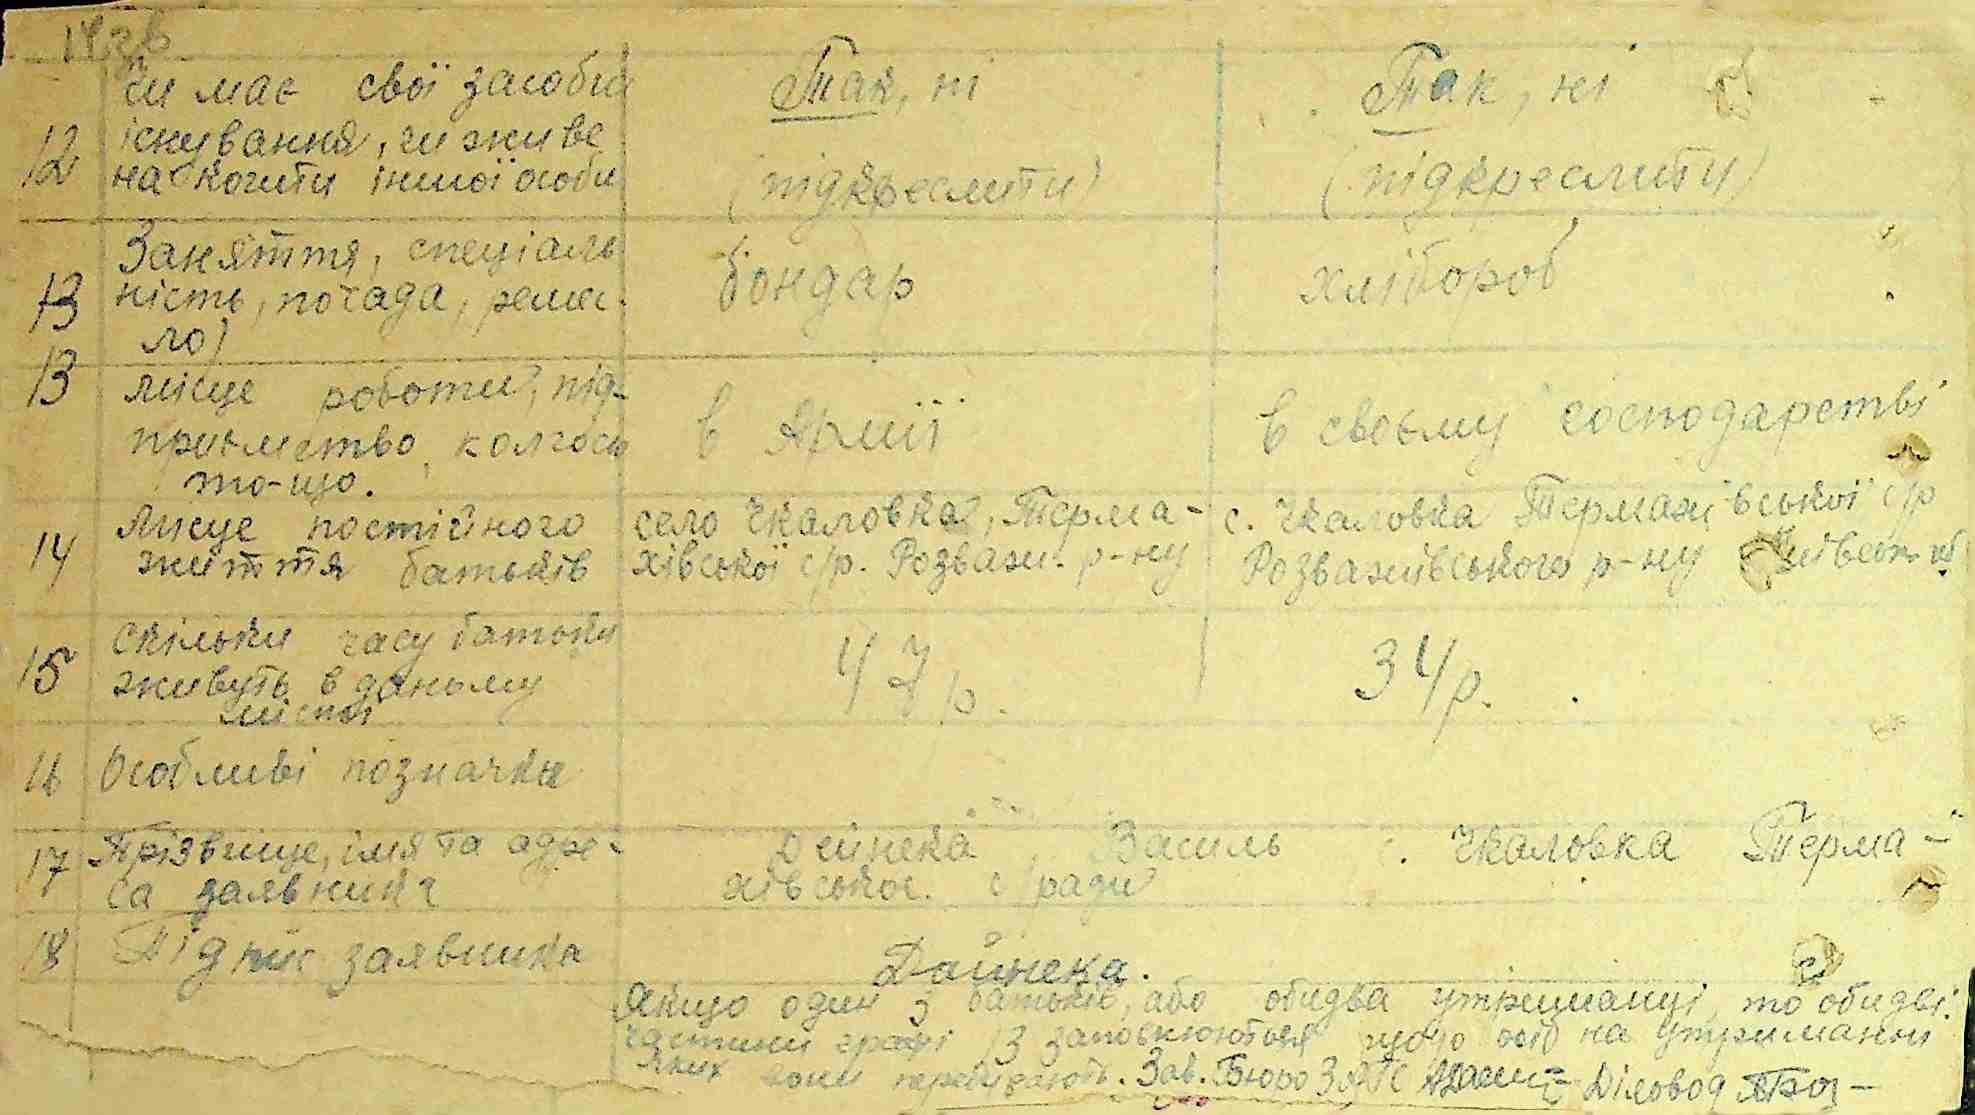 12 чи має свої засоби
існування, чи живе
на кошти іншої особи
Так, ні
(підкреслити)
Так, ні
(підкреслити)
13 Заняття, спеціаль
ність, посада, ремес-
ло)
бондар
хлібороб
13 місце роботи, під-
приємство, колгосп
то-що.
в Армії
в своєму господарстві
14 Місце постійного
життя батьків
село Чкаловка, Терма-
хівської с/р. Розваж. р-ну
с. Чкаловка Термахівської с/р
Розважівського р-ну
15 Скільки часу батьки
живуть в даньму
місті
47 р.
34 р.
16 Особливі позначки
17 Прізвище, імя та адре-
са заявника
Дейнека, Василь с. Чкаловка Терма-
хівської с/ради
18 Підпис заявника
Дайнека.
Якщо один з батьків, або обидва утриманці, то обидві
частини графі 13 заповнюються щодо осіб на утриманні
яких вони перебувають. Зав. Бюро ЗАГС Діловод